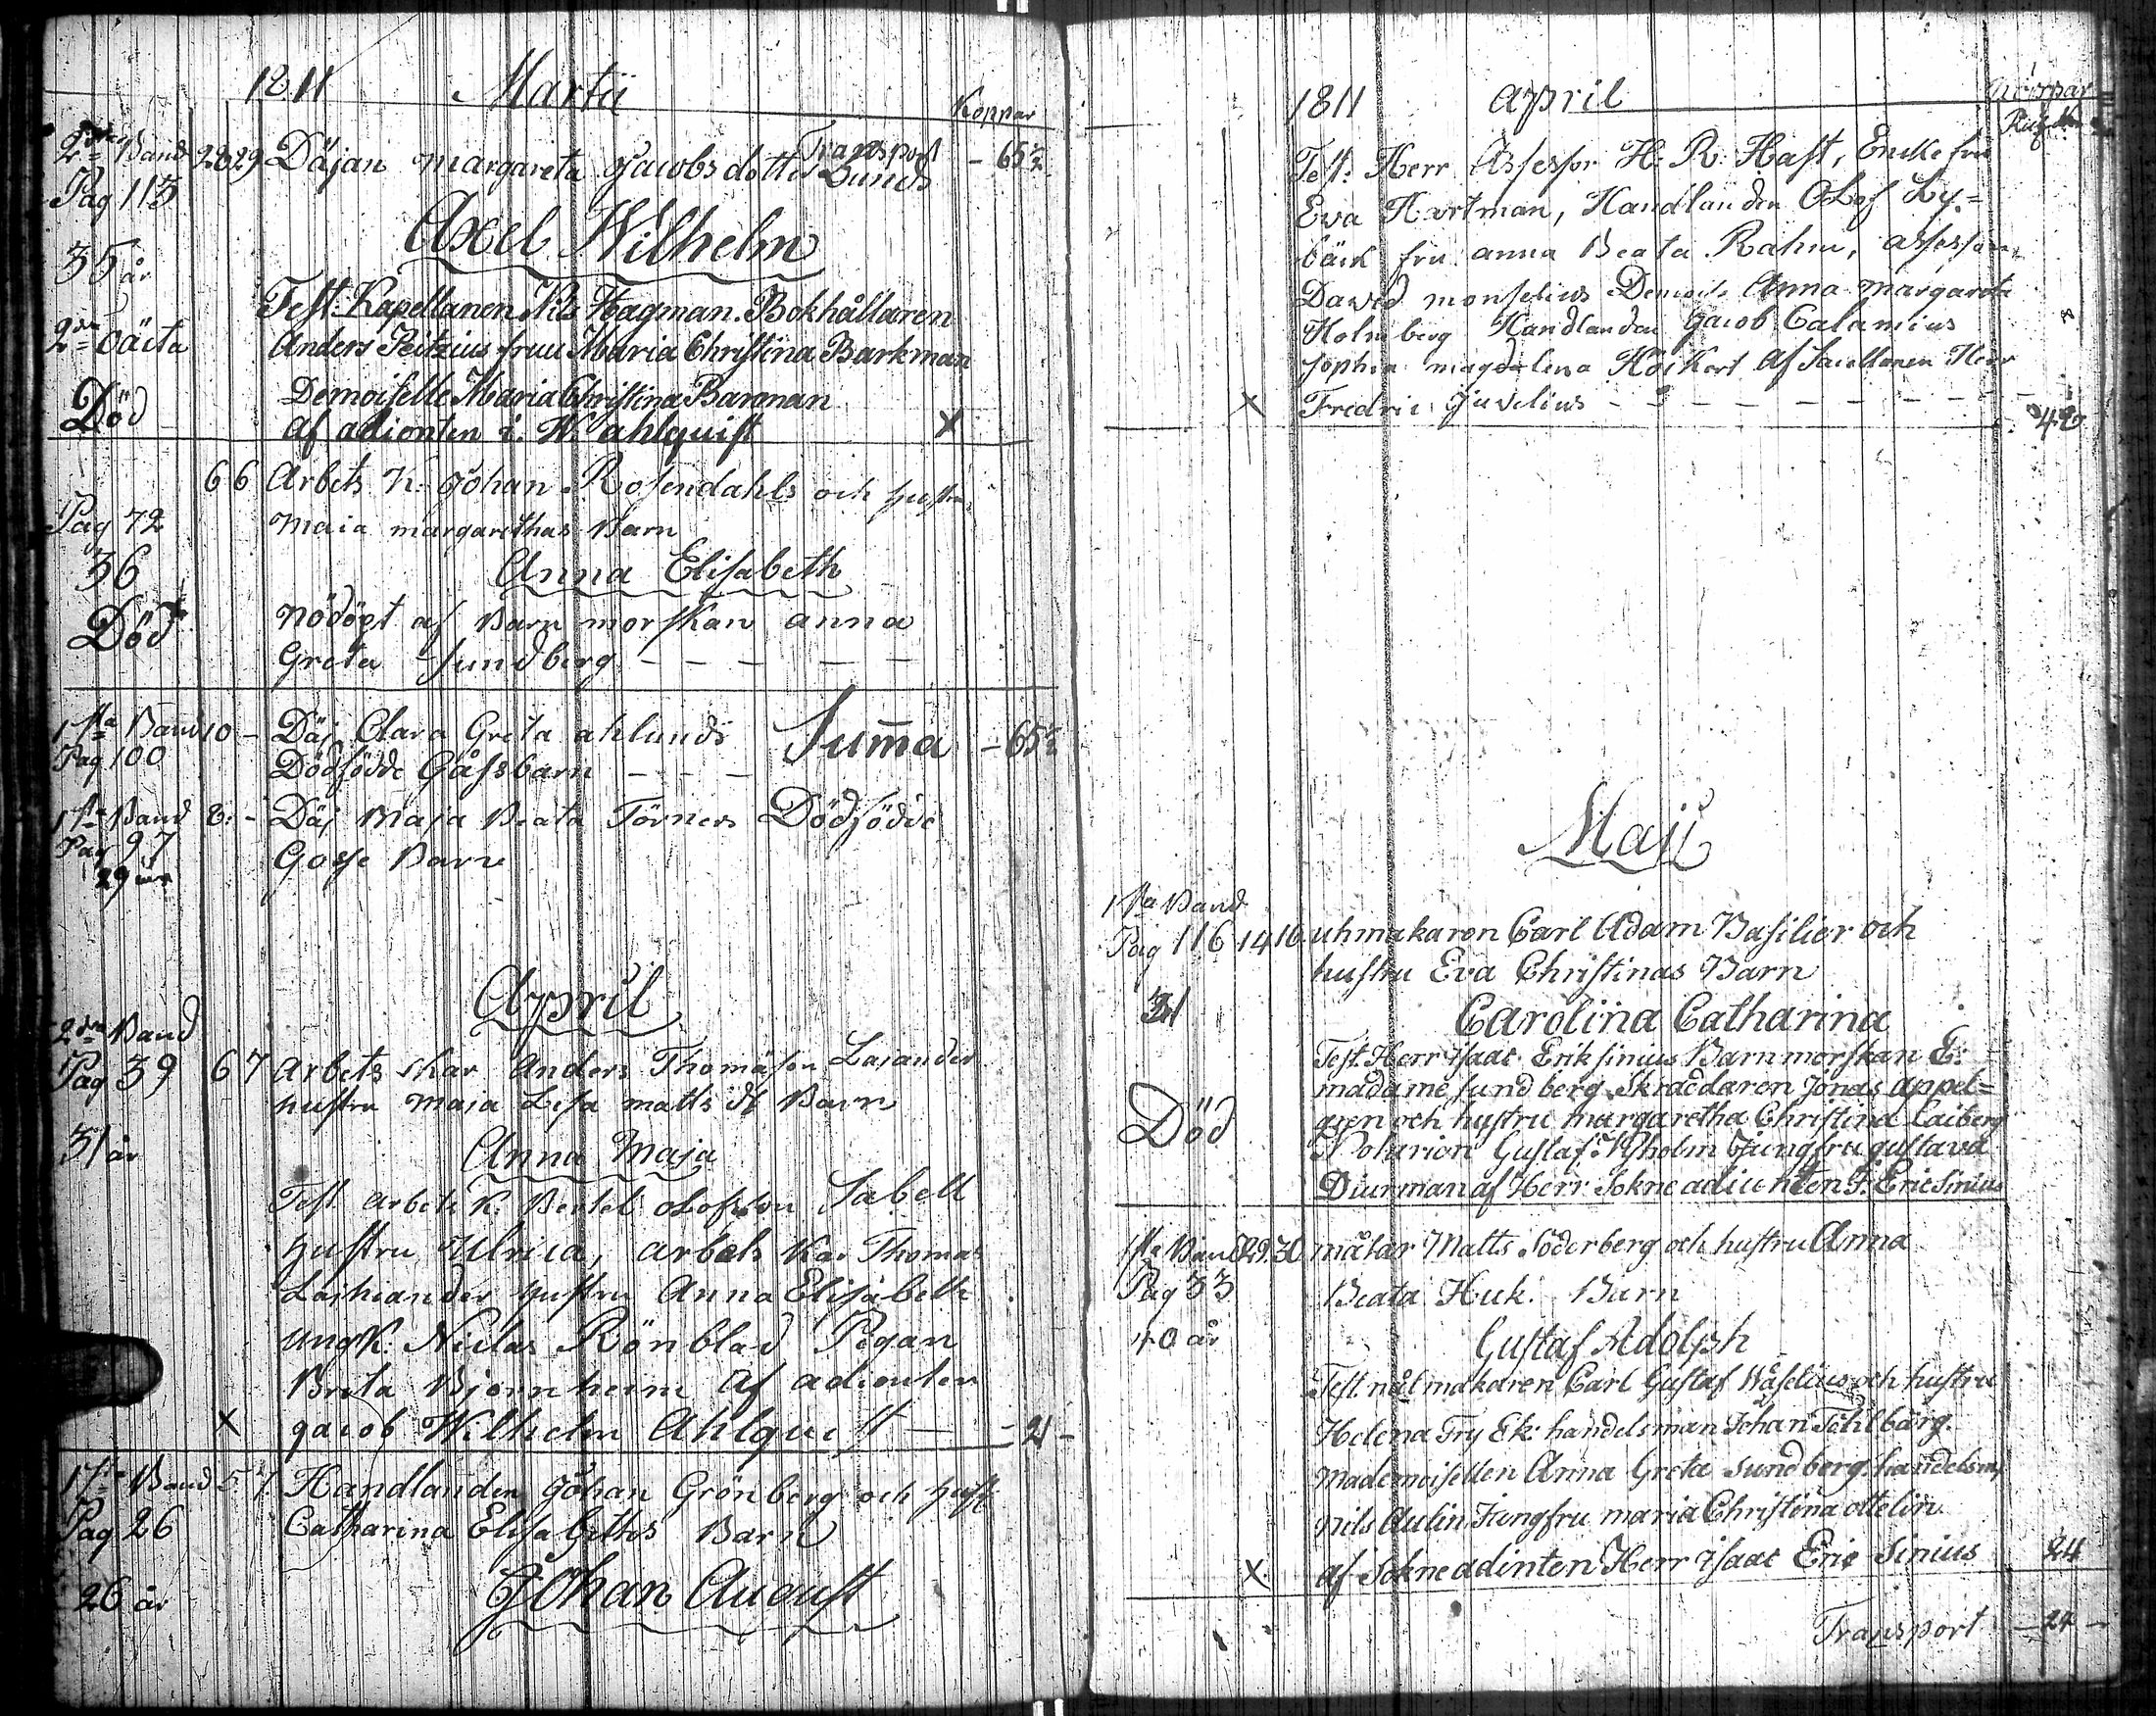 1811 Martii
Koppar
2dra Band 28 29 Däjan Margareta Jacobsdotter Lunds Transport - 65½
Pag 113
Axel Wilhelm
35 år
Test: Kapellanen Nils Hagman. Bokhållaren
2dra oäcta Anders Peitzius fruu Maria Christina Barkman
Demoiselle Maria Christina Barkman
Död af adionten i. W. ahlquist X
6 6 Arbets K: Johan Rosendahls och hustru
Pag 72 Maia margarethas Barn
36 Anna Elisabeth
Död nödöpt af Barn morskan anna
Greta Sundberg - - - - -
1sta Band 10 - Däj Clara Greta ahlunds Summa - 65½
Pag 100 Dödfödde Gåssbarn - - -
1sta Band 8: - Däj Maja Beata Törners Dödfödde
Pag 97 Gosse Barn
29 år
April
2dra Band
Pag 39 6 7 Arbets Kar Anders Thomäson Lasander
hustru Maja Lisa matts dt Barn
31 år Anna Maja
Test arbets K. Bertel olofsson Sabell
hustru Ulrica, arbets Kar Thomas
hustru Anna Elisabeth
ungK: Niclas Rönblad Pigan
Brita Bjornheim af adionten
X Jacob Wilhelm Ahlquist - - 21 -
1sta Band 5 7 Handlanden Johan Grönberg och hust
Pag 26 Catharina Elisabeths Barn
26 år Johan August
1811 April
Test: Herr Assessor H: R: Hast, Encke fru
Eva Hartman, Handlanden Olof Ly=
bäck fru anna Beata Rahm, assessorn
David monselius Demois Anna margareta
Holmberg Handlanden Jacob Calamius
sophia magdalena Höckert Af Sacellanen Herr
X Fredric Juvelius - - - - - - - - 40
Maji
1sta Band
Pag 116 14 16 uhrmakaren Carl Adam Basilier och
hustru Eva Christinas Barn
31 Carolina Catharina
Test. Herr isaac Eriksinius Barnmorskan E:
madame sundberg Skräddaren Jonas appel=
Död gren och hustru margaretha Christina Caiberg
Notarien Gustaf Nyholm Jungfru gustava
Diurman af Herr Sokneadiunten I: Ericsinius
1sta Band 29. 30 målar Matts Söderberg och hustru Anna
Pag 33 Beata Huk. Barn
40 år Gustaf Adolph
Test. nålmakaren Carl Gustaf Wåselius och hustru
Helena Try Ek: handelsman Johan Tohlbärg.
Mademoisellen Anna Greta sundberg handelsm
nils Aulin Jungfru maria Christina ottelin
X. af Sokneadinten Herr isaac Eric sinius 24
Transport - 24 -